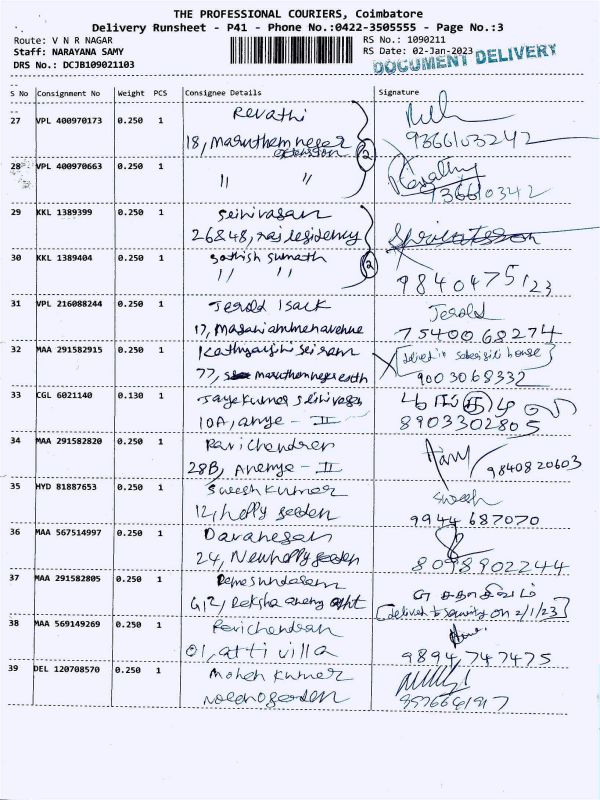 THE PROFESSIONAL COURIERS, Coimbatore
Delivery Runsheet - P41 - Phone No.:0422-3505555 - Page No.:3
Route: V N R NAGAR
RS No.: 1090211
Staff: NARAYANA SAMY
RS Date: 02-Jan-2023
DRS No.: DCJB109021103
DOCUMENT DELIVERY
S No Consignment No Weight PCS Consignee Details Signature
27 VPL 400970173 0.250 1 Revathi
18, Maruthamnagar
9366103242
28 VPL 400970663 0.250 1 " "
Revathy
936610342
2
29 KKL 1389399 0.250 1 Srinivasan
26848, raj residency
30 KKL 1389404 0.250 1 Sathish Sumath
" "
2
9840475123
31 VPL 216088244 0.250 1 Jerold Isack Jerold
17, 7540068274
32 MAA 291582915 0.250 1
77, 9003068332
33 CGL 6021140 0.130 1 Jayakumar Srinivasan
10A, - II 8903302805
34 MAA 291582820 0.250 1 Ravichandran
28B, - II 9840820603
35 HYD 81887653 0.250 1 Sureshkumar Suresh
12, holly garden 9944687070
36 MAA 567514997 0.250 1
24, New holly garden 8098902244
37 MAA 291582805 0.250 1
G,2, சதாசிவம்
delivered to security on 2/1/23
38 MAA 569149269 0.250 1 Ravichandran
01, atti villa 9894747475
39 DEL 120708570 0.250 1 Mohan Kumar
garden